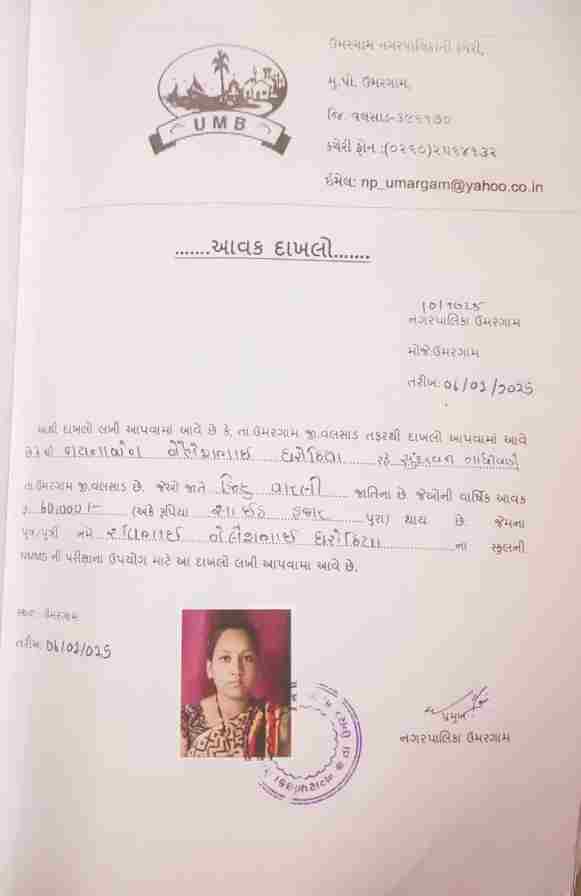 ઉમરગામ નગરપાલિકાની કચેરી,
મુ.પો. ઉમરગામ,
જિ. વલસાડ-૩૯૬૧૭૦
UMB
કચેરી ફોન :(૦૨૬૦)૨૫૬૪૧૩૨
ઈમેલ: np_umargam@yahoo.co.in
.......આવક દાખલો.......
નગરપાલિકા ઉમરગામ
મોજે.ઉમરગામ
તરીખ: 06/01/2025
આથી દાખલો લખી આપવામાં આવે છે કે, તા.ઉમરગામ જી.વલસાડ તરફથી દાખલો આપવામાં આવે
છે કે શૈલેશભાઈ ધોડિયા રહે
તા.ઉમરગામ જી.વલસાડ છે. જેઓ જાતે હિન્દુ વારલી જાતિના છે. જેઓની વાર્ષિક આવક
રૂ. 60,000/- (અંકે રૂપિયા સાઈઠ હજાર પુરા) થાય છે. જેમના
પુત્ર/પુત્રી નામે શૈલેશભાઈ ધોડિયા ના સ્કુલની
ની પરીક્ષાના ઉપયોગ માટે આ દાખલો લખી આપવામાં આવે છે.
સ્થળ: ઉમરગામ
તરીખ: 06/01/025
પ્રમુખ
નગરપાલિકા ઉમરગામ